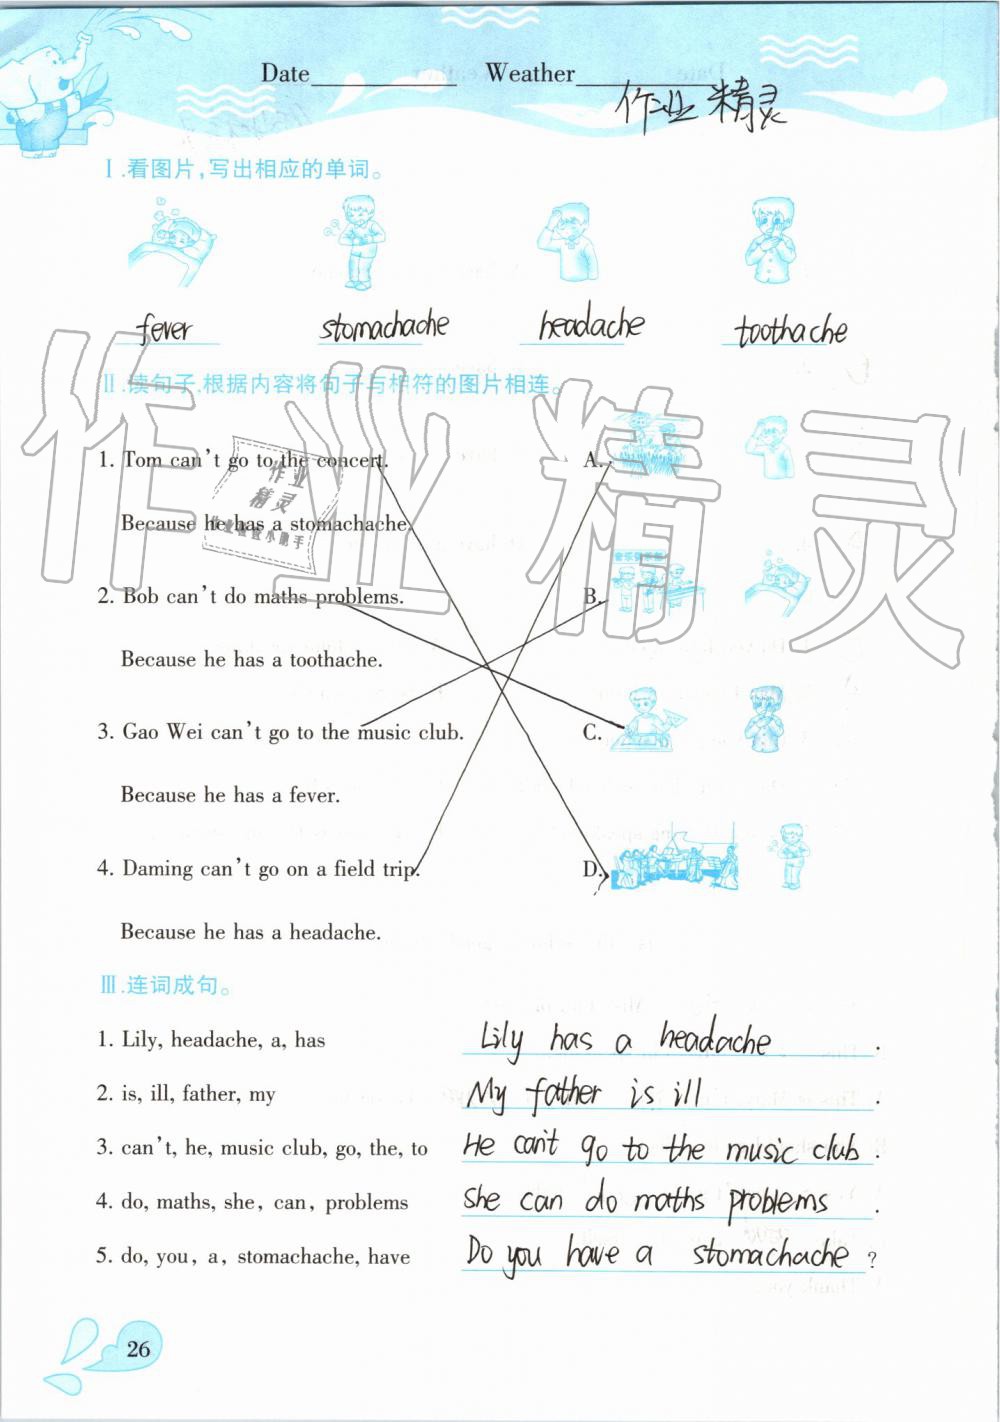 Date Weather
作业精灵
Ⅰ.看图片,写出相应的单词。
fever stomachache headache toothache
Ⅱ.读句子,根据内容将句子与相符的图片相连。
作业精灵
1. Tom can't go to the concert. A.
作业
精灵
Because he has a stomachache.
作业检查小助手
音乐俱乐部
2. Bob can't do maths problems. B.
Because he has a toothache.
3. Gao Wei can't go to the music club. C.
Because he has a fever.
4. Daming can't go on a field trip. D.
Because he has a headache.
Ⅲ.连词成句。
1. Lily, headache, a, has Lily has a headache .
2. is, ill, father, my My father is ill .
3. can't, he, music club, go, the, to He can't go to the music club .
4. do, maths, she, can, problems She can do maths problems .
5. do, you, a, stomachache, have Do you have a stomachache ?
26